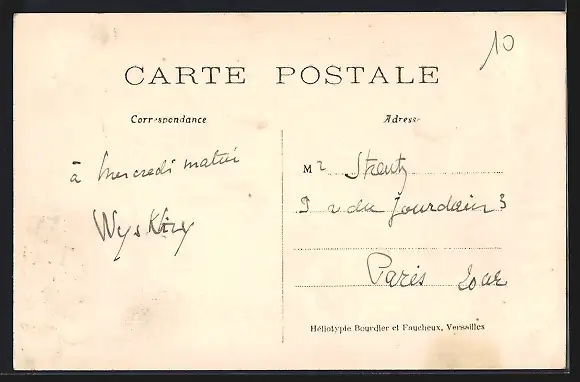 10
CARTE POSTALE
Correspondance
Adresse
à mercredi matin
Mr
r du Jourdain 3
Paris
Héliotypie Bourdier et Faucheux, Versailles